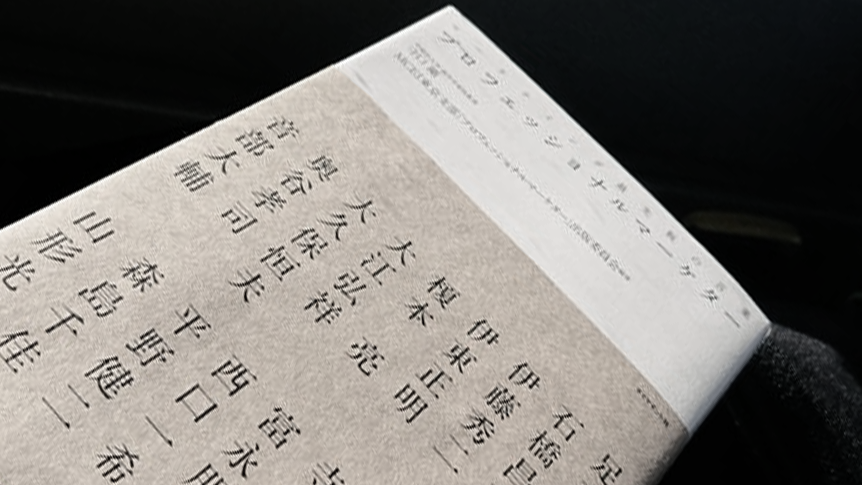 プロフェッショナルマーケター
足
石橋昌
伊藤秀二
伊東正明
榎本 亮
大江弘祥
大久保恒夫
奥谷孝司
音部大輔
富永朋
西口一希
平野健二
森島千佳
山形光
ダイヤモンド社